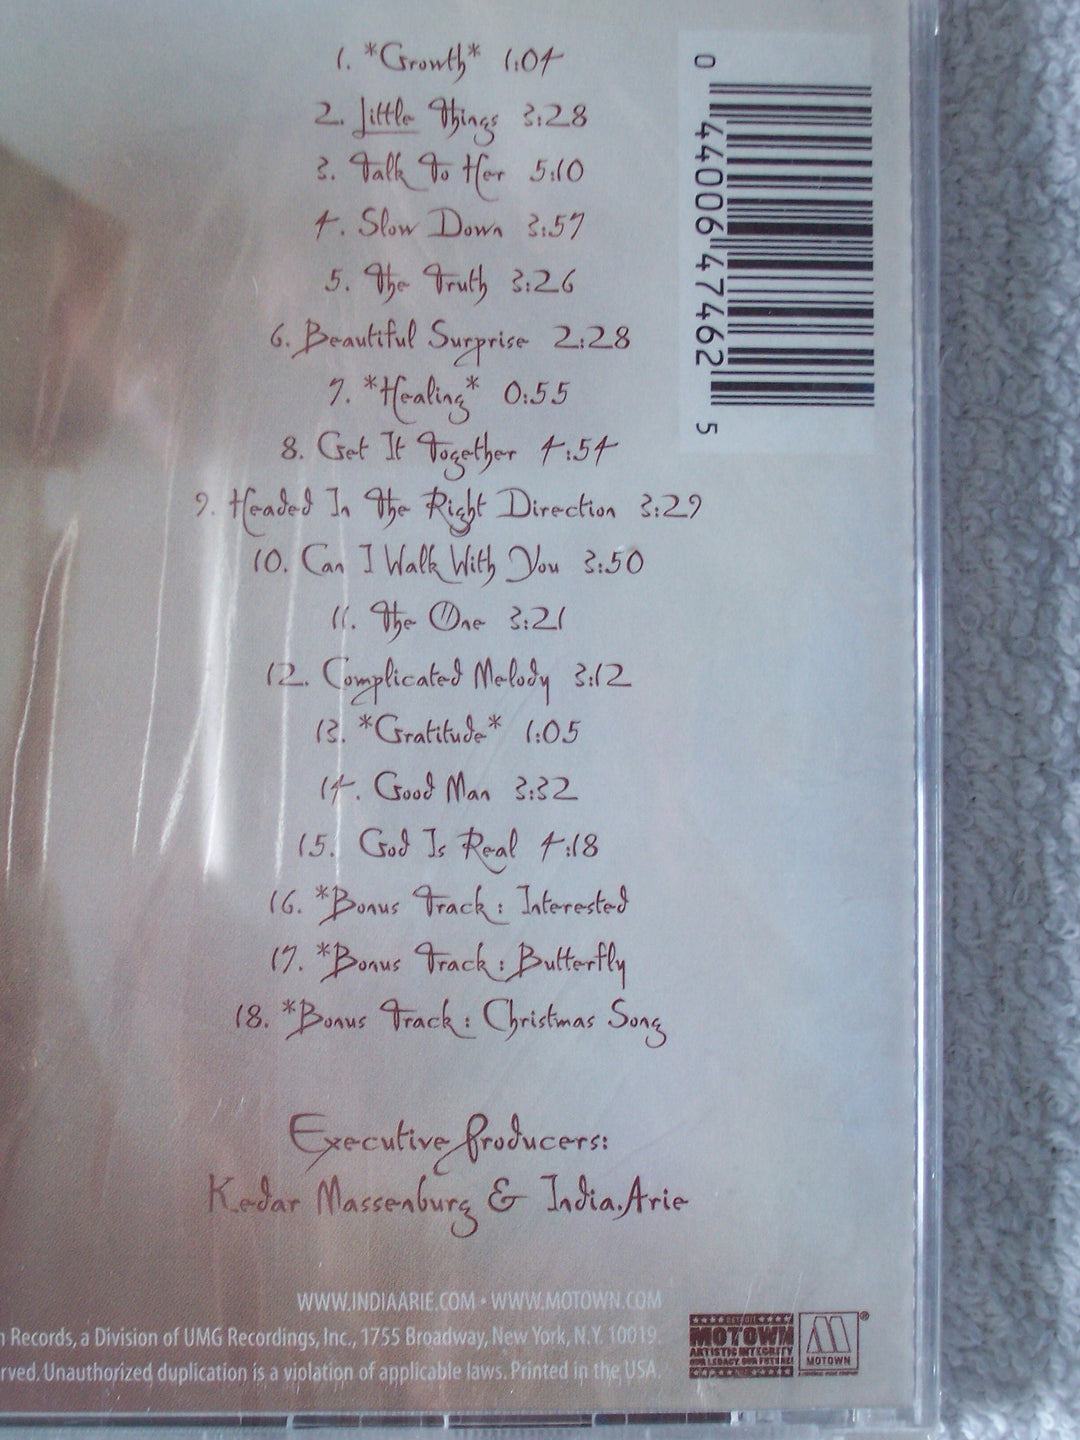 1. *Growth* 1:04
2. Little Things 3:28
3. Talk To Her 5:10
4. Slow Down 3:57
5. The Truth 3:26
6. Beautiful Surprise 2:28
7. *Healing* 0:55
8. Get It Together 4:54
9. Headed In The Right Direction 3:29
10. Can I Walk With You 3:50
11. The One 3:21
12. Complicated Melody 3:12
13. *Gratitude* 1:05
14. Good Man 3:32
15. God Is Real 4:18
16. *Bonus Track: Interested
17. *Bonus Track: Butterfly
18. *Bonus Track: Christmas Song
0 44006 47462 5
Executive Producers:
Kedar Massenburg & India.Arie
WWW.INDIAARIE.COM • WWW.MOTOWN.COM
Records, a Division of UMG Recordings, Inc., 1755 Broadway, New York, N.Y. 10019.
rved. Unauthorized duplication is a violation of applicable laws. Printed in the USA.
DETROIT
MOTOWN
ARTISTIC INTEGRITY
OUR LEGACY. OUR FUTURE!
M®
MOTOWN